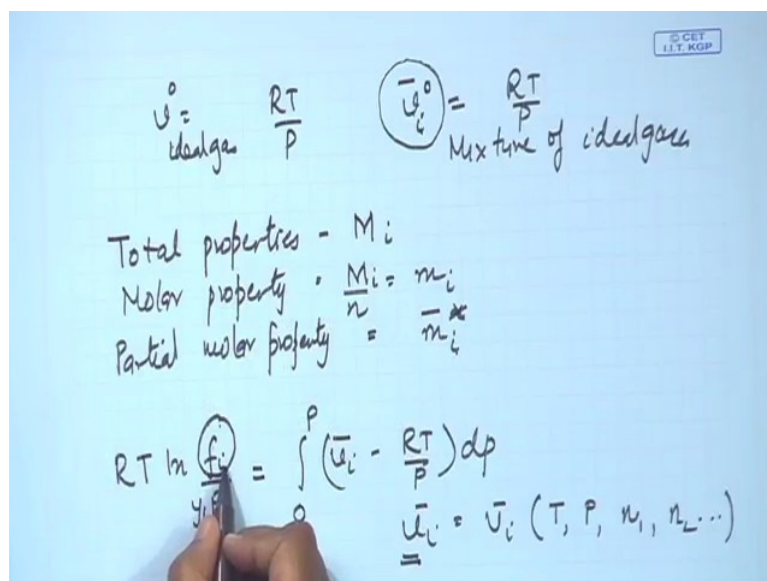 © CET
I.I.T. KGP
υ° = RT/P
ideal gas
ῡᵢ° = RT/P
Mixture of ideal gases
Total properties - Mᵢ
Molar property · Mᵢ/n = mᵢ
Partial molar property = m̄ᵢ*
RT ln fᵢ/yᵢ = ∫₀ᴾ (ῡᵢ - RT/P) dp
ῡᵢ = ῡᵢ (T, P, n₁, n₂...)